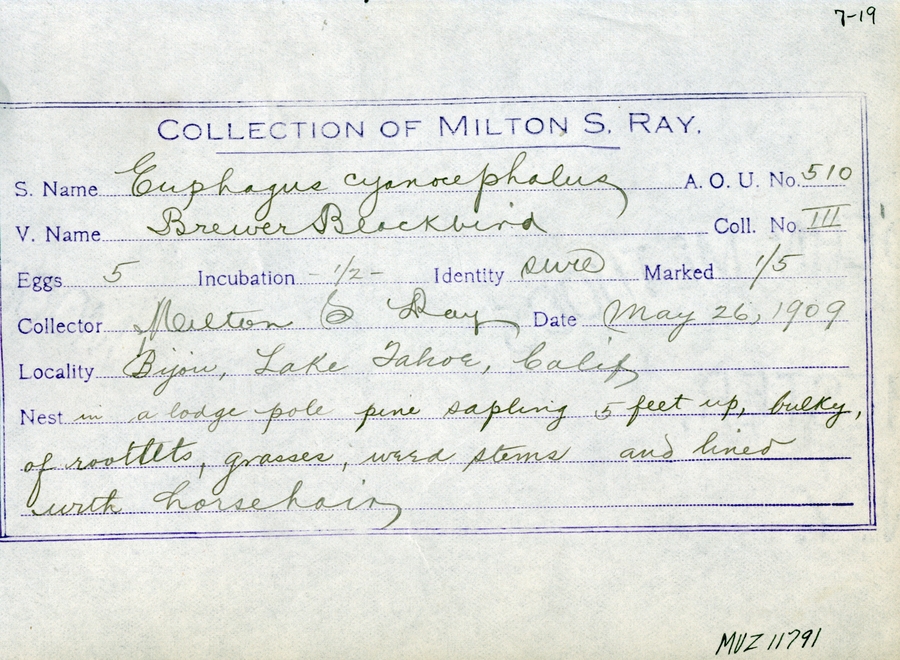 7-19
COLLECTION OF MILTON S. RAY.
S. Name Euphagus cyanocephalus A. O. U. No. 510
V. Name Brewer Blackbird Coll. No. III
Eggs 5 Incubation - 1/2 - Identity sure Marked 1/5
Collector Milton S Ray Date May 26, 1909
Locality Bijou, Lake Tahoe, Calif
Nest in a lodge pole pine sapling 5 feet up, bulky,
of rootlets, grasses, weed stems and lined
with horsehair
MVZ 11791